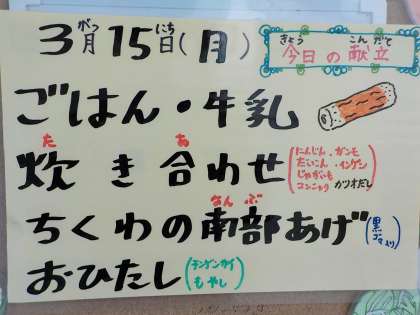 3月15日(月)
がつ にち
きょう こんだて
今日の献立
ごはん・牛乳
た あ
炊き合わせ
(にんじん・ガンモ
だいこん・インゲン
じゃがいも
コンニャク カツオだし)
なんぶ
ちくわの南部あげ
(黒ゴマ入り)
おひたし
(チンゲンサイ
もやし)